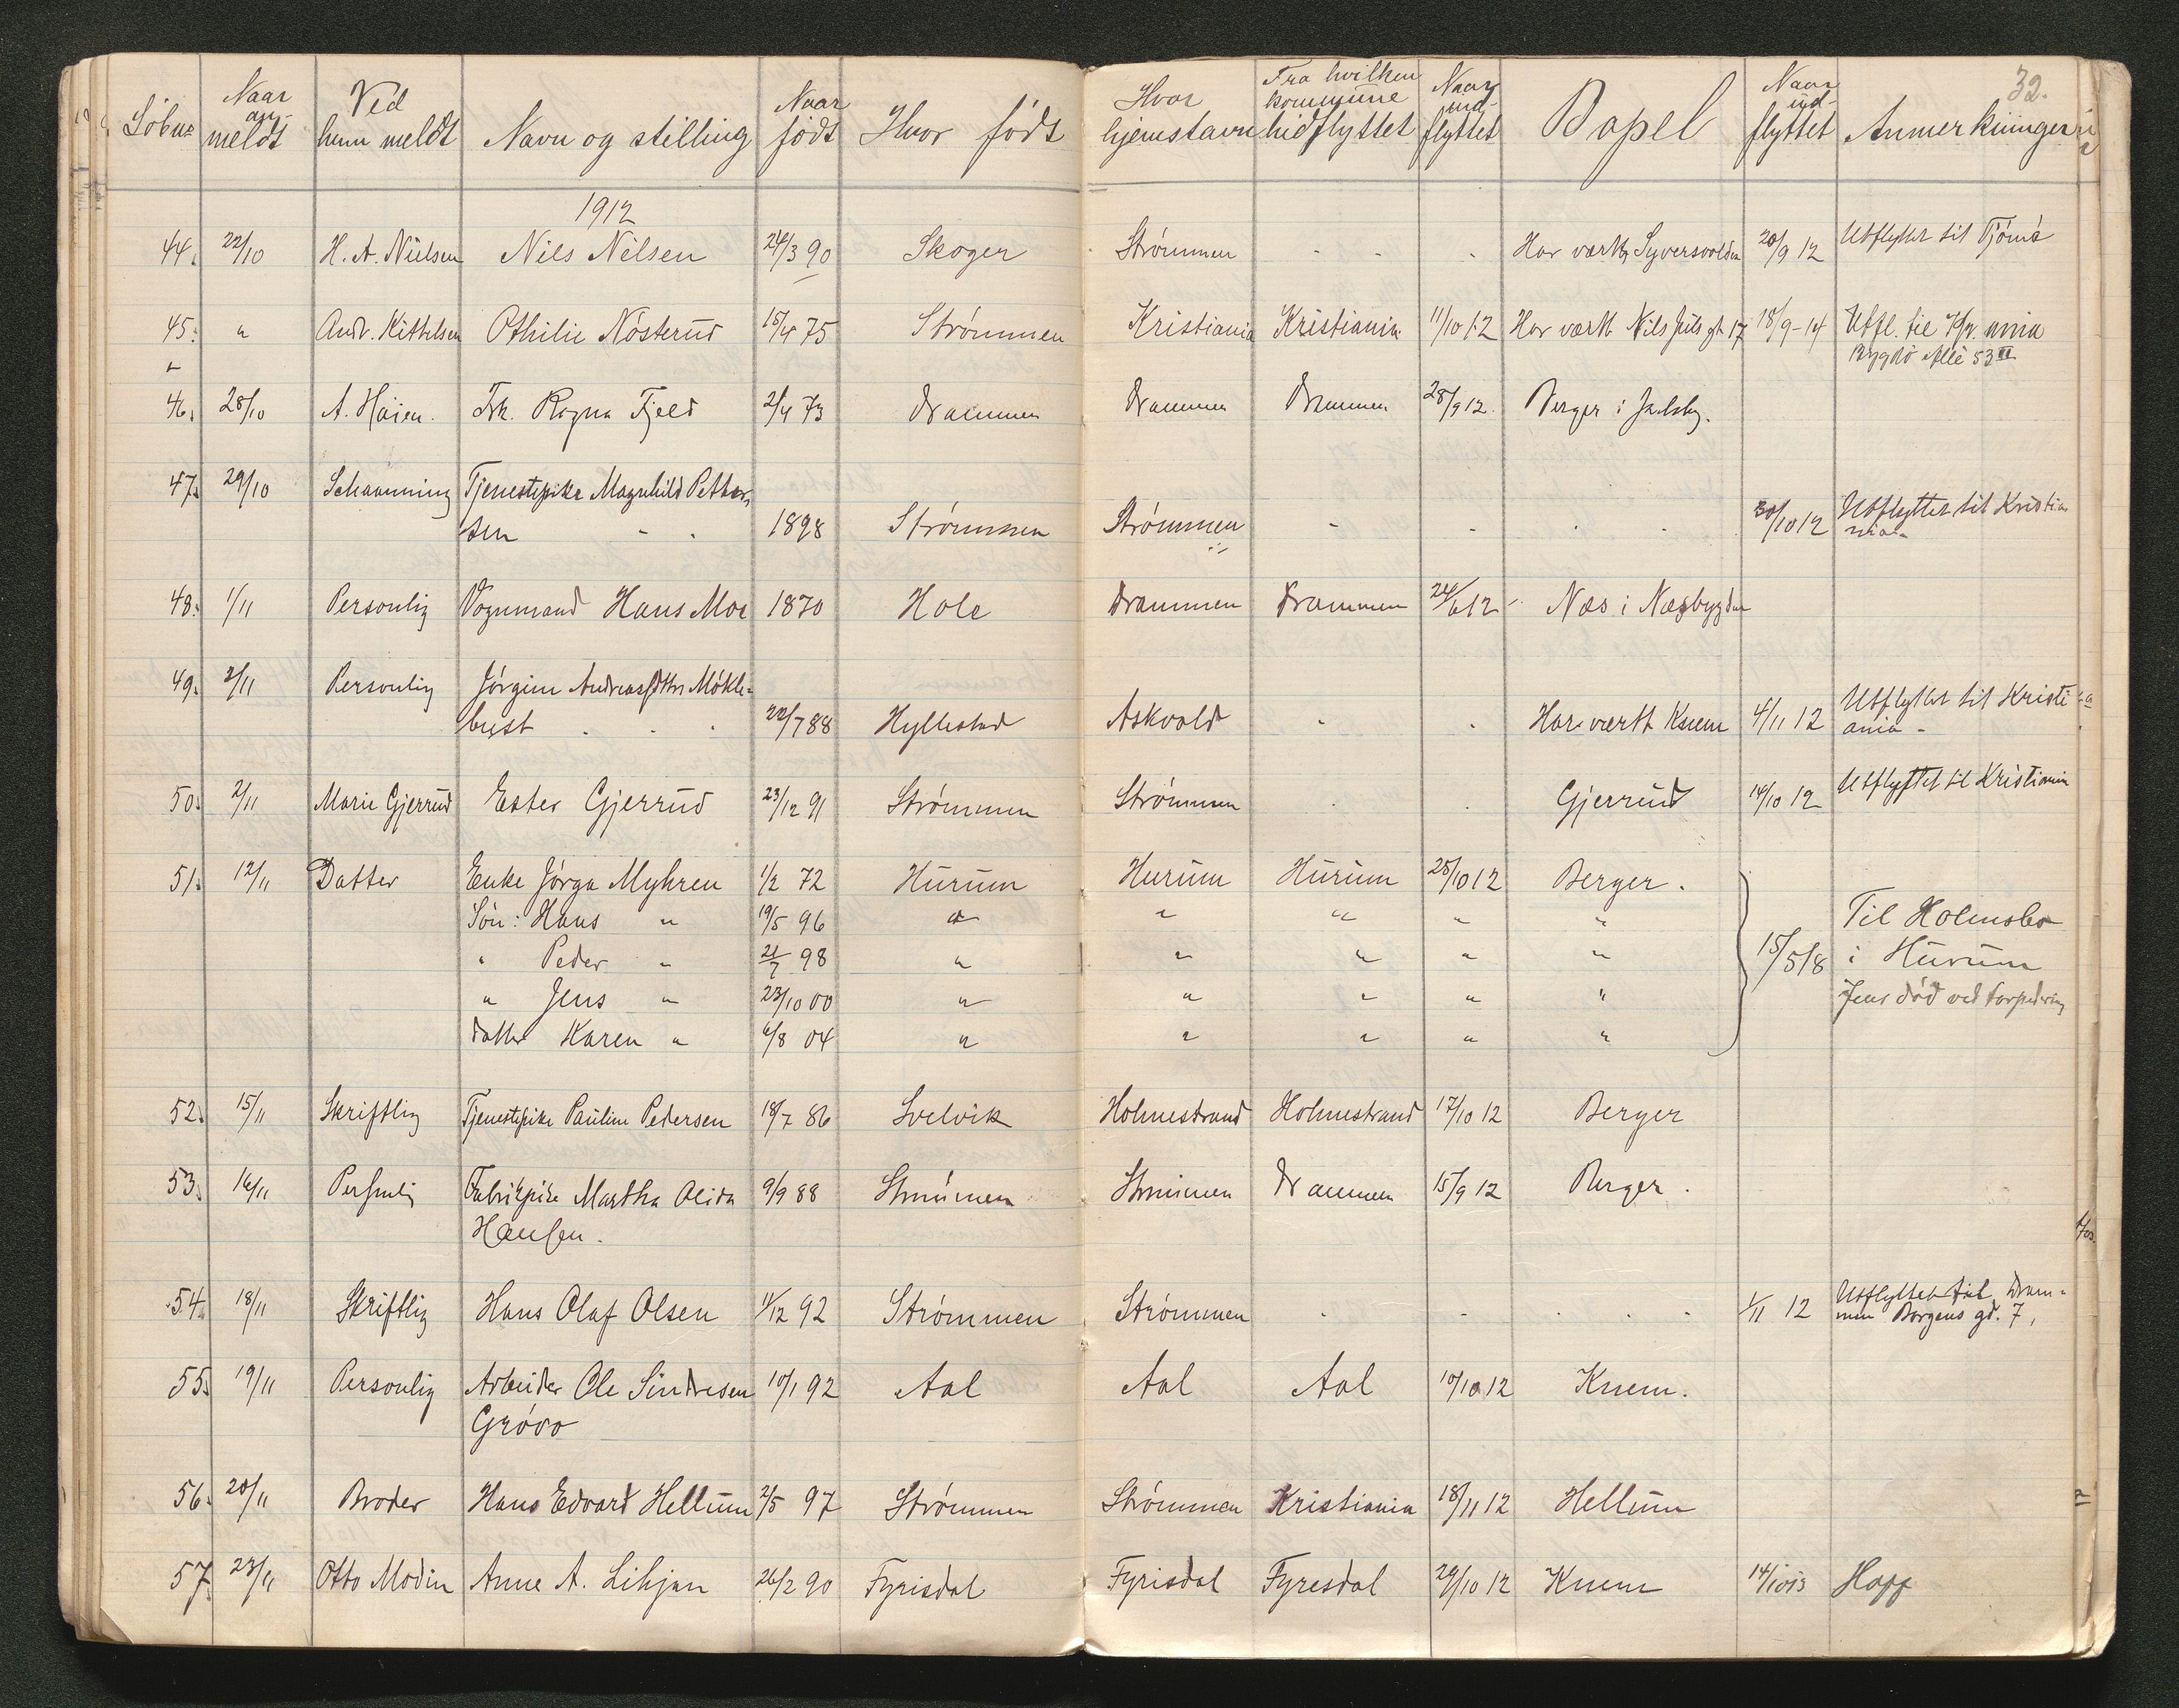 32.
Löbnr Naar anmeldt Ved hvem meldt Navn og stilling Naar födt Hvor födt Hvor hjemstavn Fra hvilken kommune hidflyttet Naar indflyttet Bopel Naar udflyttet Anmerkninger
1912
44. 22/10 H. A. Nielsen Nils Nilsen 24/3 90 Skoger Strömmen - - . Har vært Syversvolden 20/9 12 Utflyttet til Tjömö
45. " Andr. Kittelsen Othilie Nösterud 15/4 75 Strömmen Kristiania Kristiania 11/10 12 Har vært Nils Juels gt 17 18/9-14 Utfl. til
Bygdö Allé 53 II
46. 28/10 A. Höien. Frk. Ragna Fjeld 2/4 73 Drammen Drammen Drammen 28/9 12. Berger i
47. 29/10 Schwanning Tjenestepike Magnhild Petter-
sen - . 1898 Strömmen Strömmen - - . - 30/10 12 Utflyttet til Kristia
nia.
48. 1/11 Personlig Vognmand Hans Moe 1870 Hole Drammen Drammen 24/6 12 Næs i Næsbygden
49. 2/11 Personlig Jörgine Andreasdtter Mökle-
bust . . . 22/7 88 Hyllestad Askvold . . Har vært Knem 4/11 12 Utflyttet til Kristi
ania -
50. 2/11 Marie Gjerrud Ester Gjerrud 23/12 91 Strömmen Strömmen . . Gjerrud 14/10 12 Utflyttet til Kristiania
51. 12/11 Datter Enke Jörga Myhren 1/2 72 Hurum Hurum Hurum 25/10 12 Berger.
Sön: Hans " 19/5 96 " " " " " Til Holmsbo
" Peder " 21/7 98 " " " " " 15/5 18 i Hurum
" Jens " 23/10 00 " " " " " Jens död ved torpedering
datter Karen " 6/8 04 " " " " "
52. 15/11 Skriftlig Tjenestepike Pauline Pedersen 18/7 86 Svelvik Holmestrand Holmestrand 17/10 12 Berger
53. 16/11 Personlig Fabrikpike Martha Olida 9/9 88 Strömmen Strömmen Drammen 15/9 12 Berger.
Hansen.
54. 18/11 Skriftlig Hans Olaf Olsen 11/12 92 Strömmen Strömmen . - . . - 1/11 12 Utflyttet til Dram-
men Borgens gd. 7,
55. 19/11 Personlig Arbeider Ole Sindresen 10/1 92 Aal Aal Aal 10/10 12 Knem.
Grövo
56. 20/11 Broder Hans Edvard Hellum 2/5 97 Strömmen Strömmen Kristiania 18/11 12 Hellum
57. 23/11 Otto Modin Anne A. Lihjan 26/2 90 Fyrisdal Fyrisdal Fyresdal 29/10 12 Knem 14/10 13 Hoff